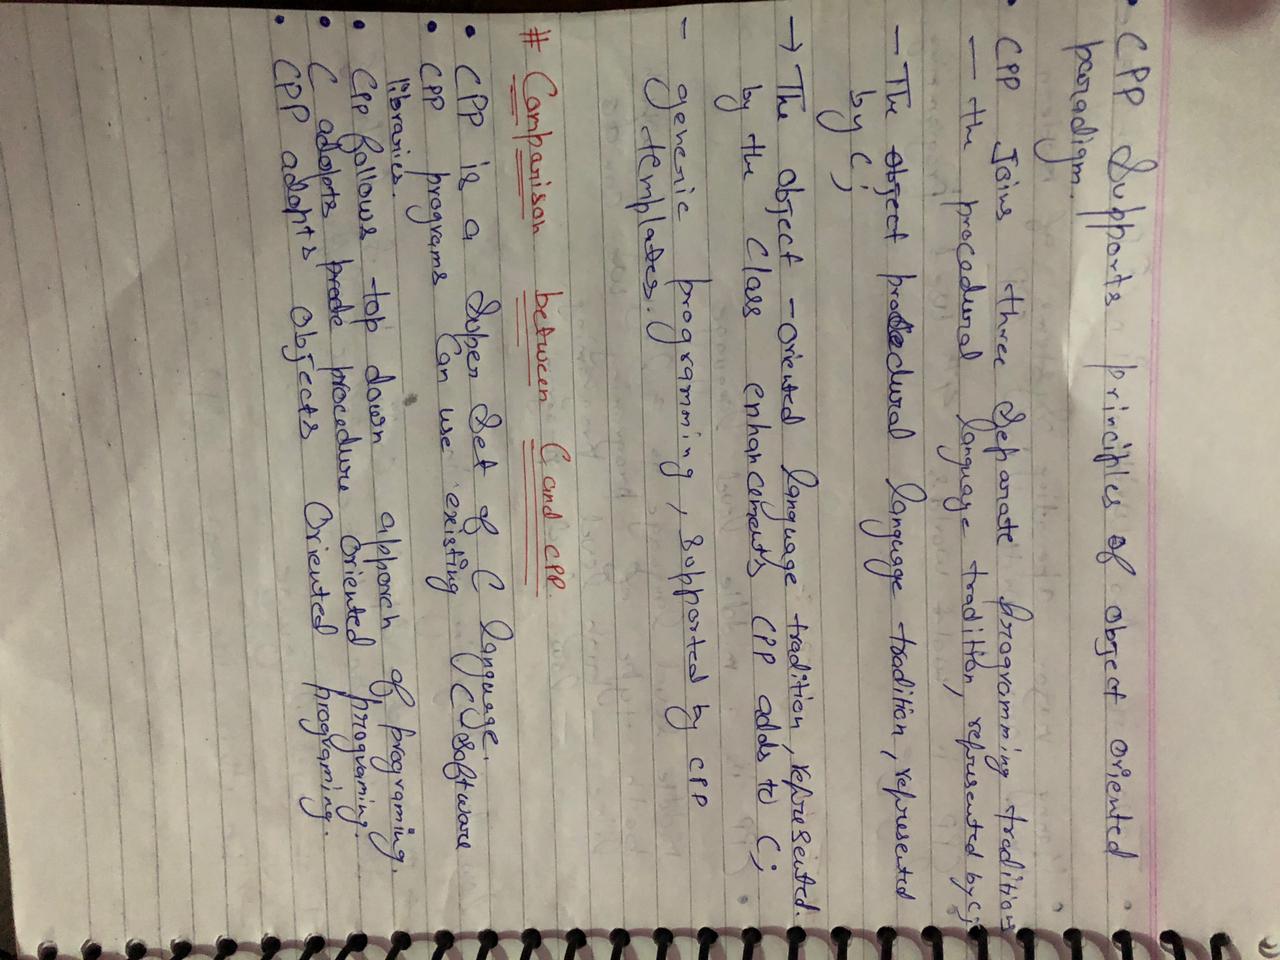 • CPP Supports principles of object oriented
paradigm.
• CPP Joins three Separate programming traditions
— the procedural language tradition, represented by C;
— The object procedural language tradition, represented
by C;
→ The object-oriented language tradition, represented.
by the Class enhancements CPP adds to C;
— generic programming, supported by CPP
templates.
# Comparison between C and CPP.
• CPP is a Super Set of C language.
• CPP programs Can use existing C software
libraries.
• CPP follows top down apporch of programing.
• C adopts procedure oriented programing.
• CPP adopts objects Oriented programing.